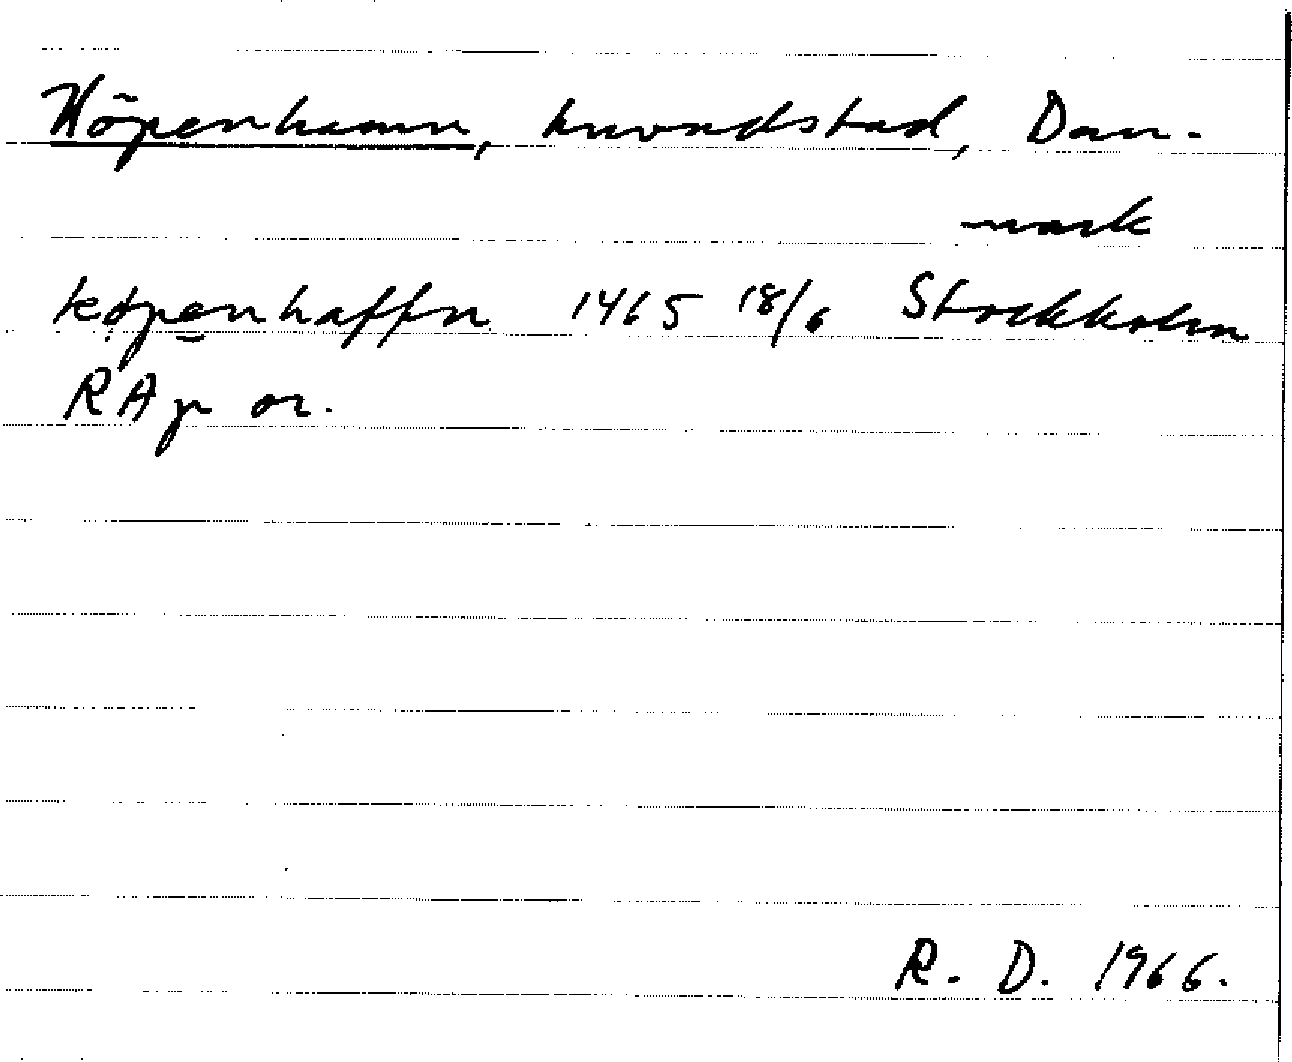 Köpenhamn, huvudstad, Dan-
mark
køpenhaffn 1465 18/6 Stockholm
RAp or.
R. D. 1966.